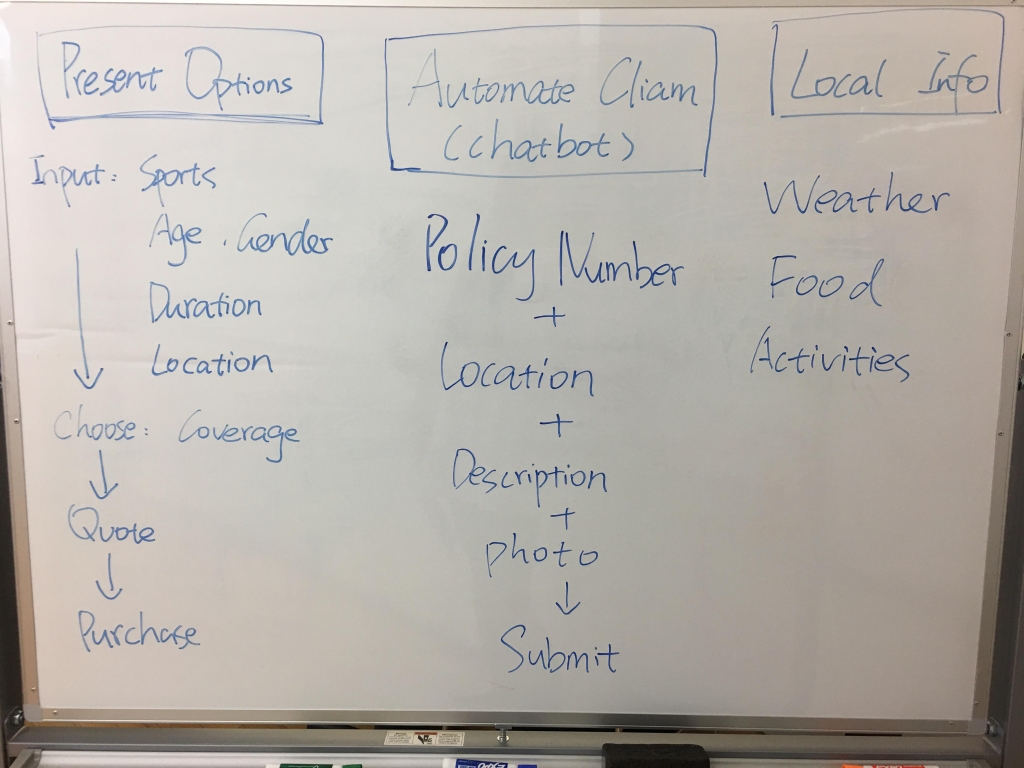 Present Options
Input: Sports
Age, Gender
Duration
Location
Choose: Coverage
Quote
Purchase
Automate Cliam
(chatbot)
Policy Number
+
Location
+
Description
+
photo
Submit
Local Info
Weather
Food
Activities